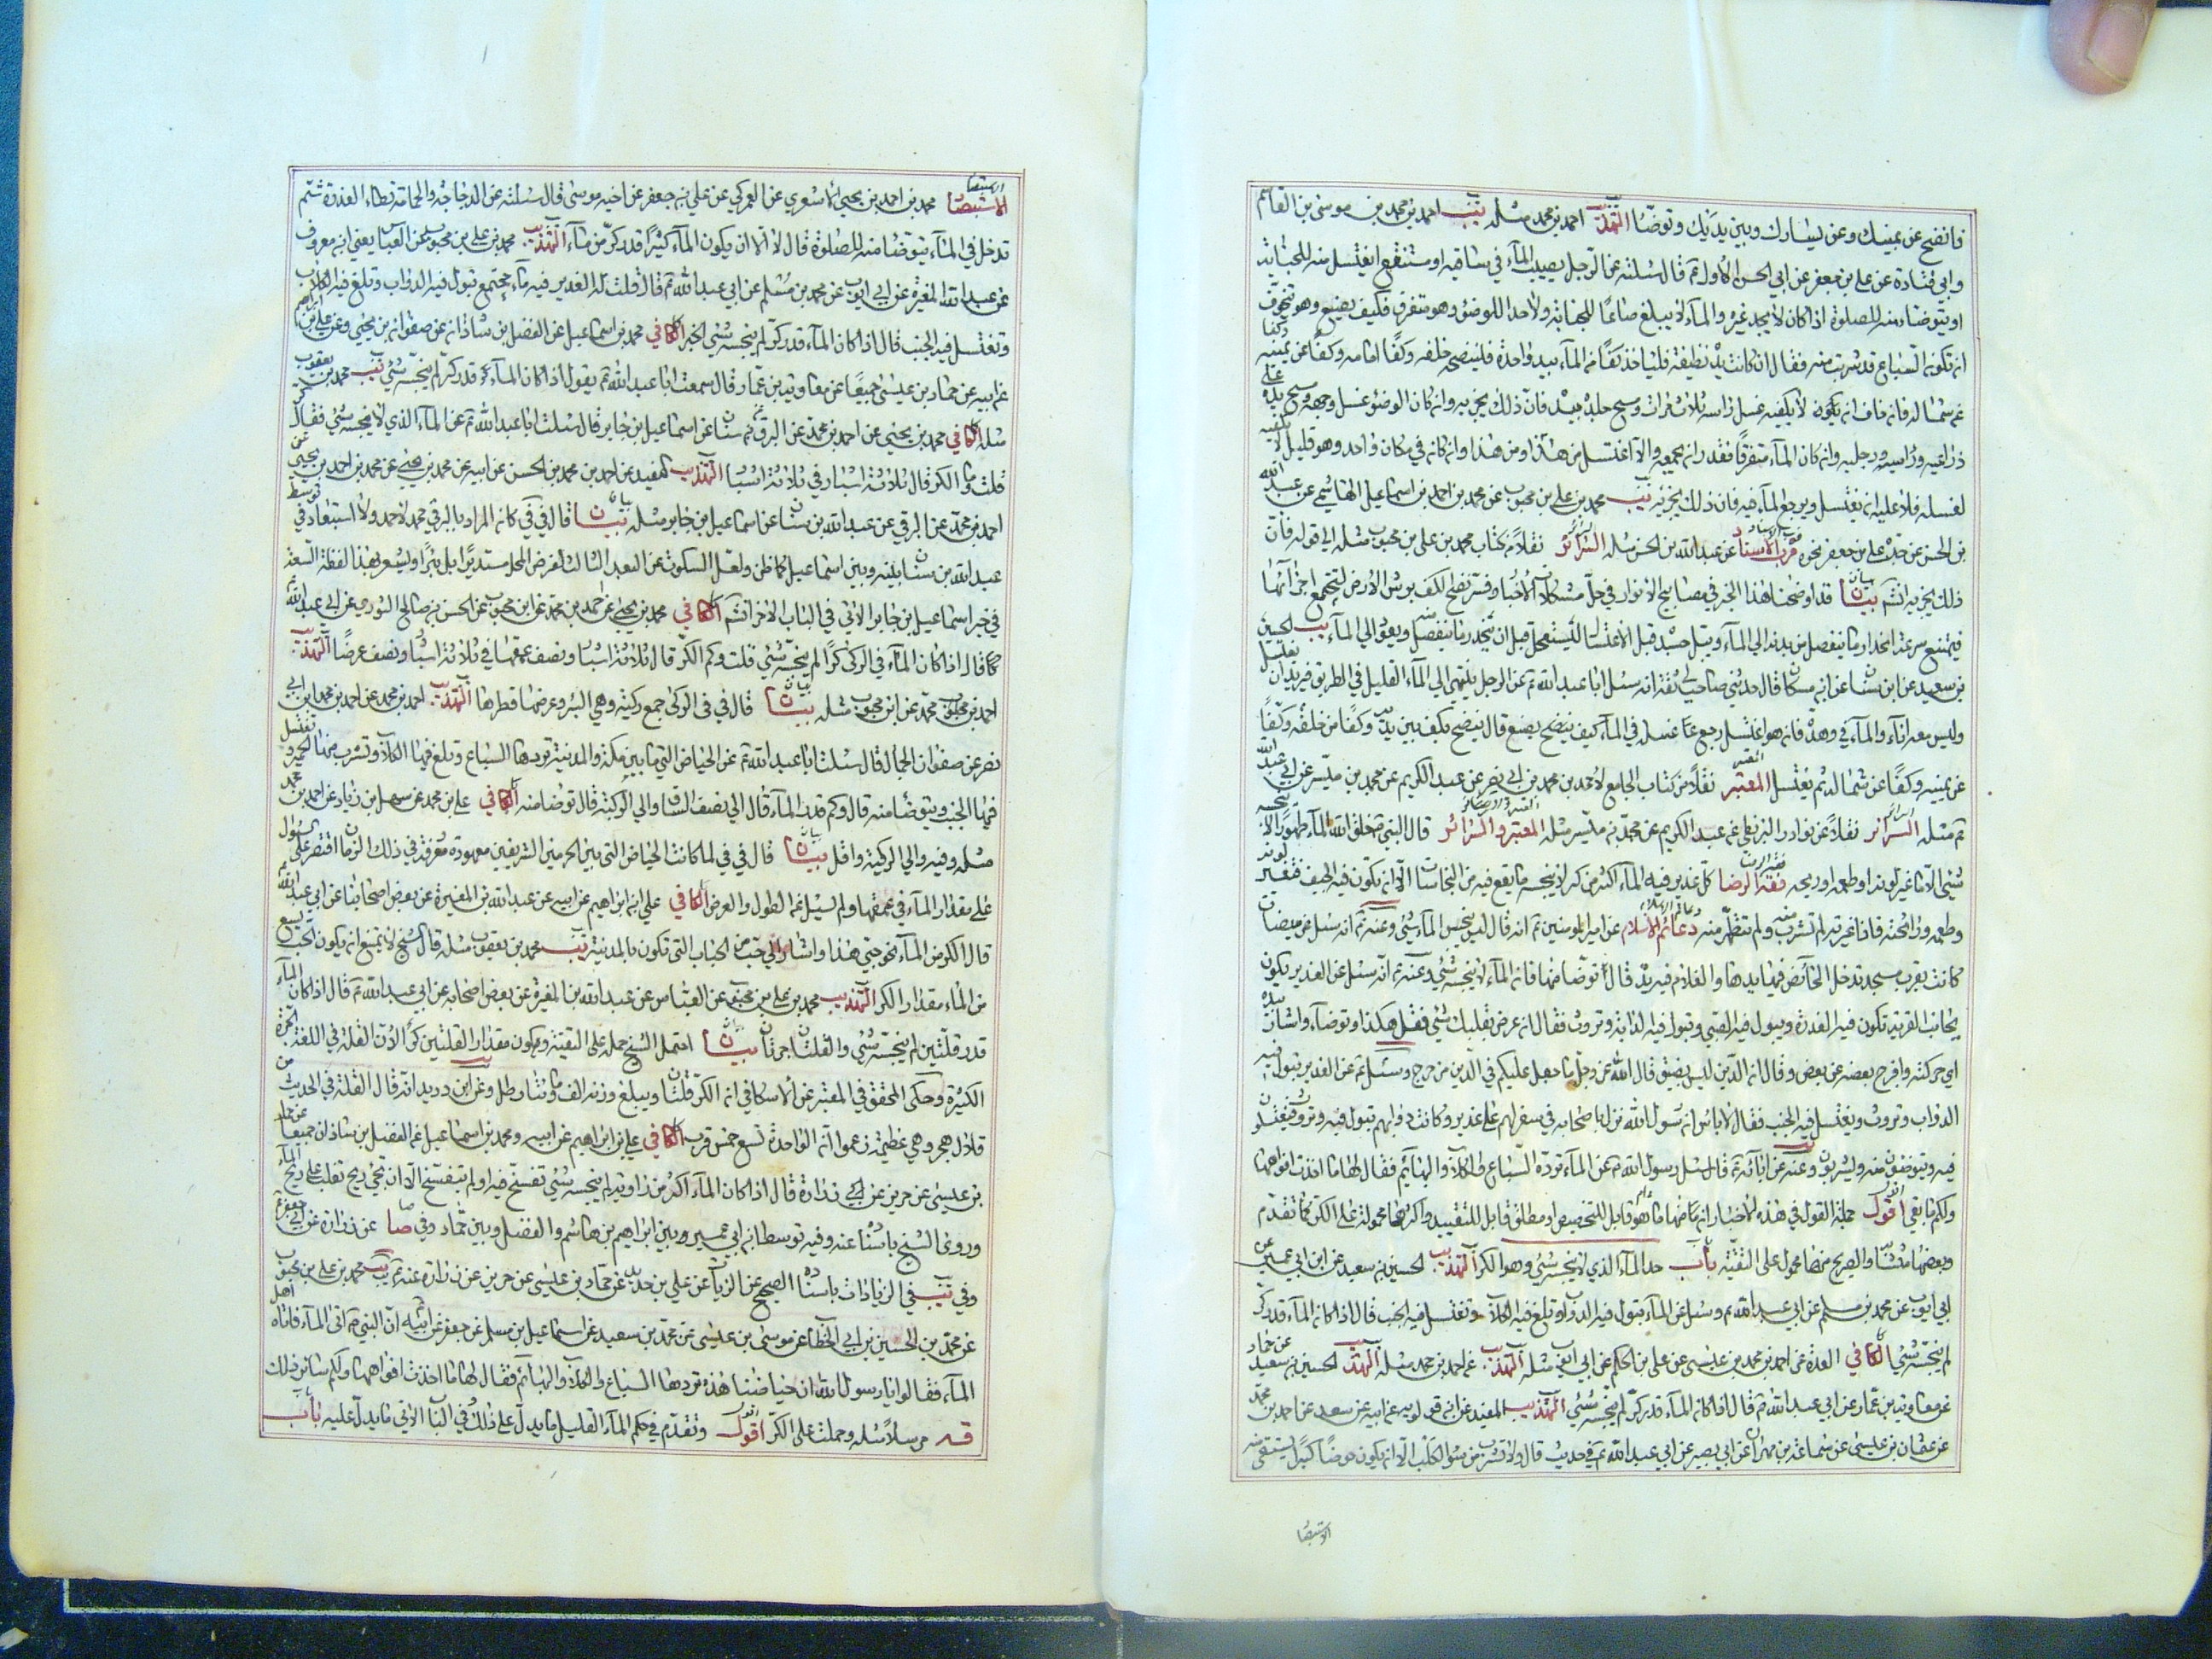 فانضح عن يمينك وعن يسارك وبين يديك وتوضأ التهذيب احمد بن محمد مثله يب احمد بن محمد بن موسى بن القاسم
وابي قتادة عن علي بن جعفر عن ابي الحسن الاول ع قال سئلته عن الرجل يصيب الماء في ساقيه او مستنقع ايغتسل منه للجنابة
او يتوضأ منه للصلوة اذا كان لا يجد غيره والماء لا يبلغ صاعا للجنابة ولا مدا للوضوء وهو متفرق فكيف يصنع وهو يتخوف
ان تكون السباع قد شربت منه فقال ان كانت يده نظيفة فلياخذ كفا من الماء بيد واحدة فلينضحه خلفه وكفا امامه وكفا عن يمينه وكفا
عن شماله فان خاف ان لا يكفيه غسل راسه ثلاث مرات ومسح جلده بيده فان ذلك يجزيه وان كان الوضوء غسل وجهه ومسح يده على
ذراعيه وراسه ورجليه وان كان الماء متفرقا فقدر ان يجمعه والا اغتسل من هذا ومن هذا وان كان في مكان واحد وهو قليل لا يكفيه
لغسله فلا عليه ان يغتسل ويرجع الماء فيه فان ذلك يجزيه يب محمد بن علي بن محبوب عن محمد بن احمد بن اسماعيل الهاشمي عن عبد الله
بن الحسن عن جده علي بن جعفر نحوه قرب الاسناد عن عبد الله بن الحسن مثله السرائر نقلا من كتاب محمد بن علي بن محبوب مثله الى قوله فان
ذلك يجزيه انشم بيان قد اوضحنا هذا الخبر في مصابيح الانوار في حل مشكلات الاخبار وفسر نضح الاكف برش الارض لتجتمع اجزائها
فيمتنع سرعة انحدار ما ينفصل من بدنه الى الماء وببل جسده قبل الاغتسال ليستعجل قبل ان ينحدر ما ينفصل منه ويعود الى الماء يب الحسين
بن سعيد عن ابن سنان عن ابن مسكان قال حدثني صاحب لي ثقة انه سئل ابا عبد الله ع عن الرجل ينتهي الى الماء القليل في الطريق فيريد ان يغتسل
وليس معه اناء والماء في وهدة فان هو اغتسل رجع غسله في الماء كيف يصنع قال ينضح بكف بين يديه وكفا من خلفه وكفا
عن يمينه وكفا عن شماله ثم يغتسل المعتبر نقلا من كتاب الجامع لاحمد بن محمد بن ابي نصر عن عبد الكريم عن محمد بن ميسر عن ابي عبد الله
ع مثله السرائر نقلا عن نوادر البزنطي عن عبد الكريم عن محمد بن ميسر مثله المعتبر والسرائر قال النبي ص خلق الله الماء طهورا لا ينجسه
شئ الا ما غير لونه او طعمه او ريحه فقه الرضا كل غدير فيه الماء اكثر من كر لا ينجسه ما يقع فيه من النجاسات الا ان تكون فيه الجيف فتغير لونه
وطعمه ورائحته فاذا غيرته لم تشرب منه ولم تتطهر منه دعائم الاسلام عن امير المؤمنين ع انه قال ليس ينجس الماء شئ وعنه ع انه سئل عن ميضاة
كانت بقرب مسجد تدخل الحائض فيها يدها والغلام فيه يده قال توضأ منها فان الماء لا ينجسه شئ وعنه ع انه سئل عن الغدير يكون
بجانب القرية تكون فيه العذرة ويبول فيه الصبي وتبول فيه الدابة وتروث فقال ان عرض بقلبك شئ فقل هكذا وتوضأ واشار بيده
اي حركته وافرج بعضه عن بعض وقال ان الدين ليس بضيق قال الله عز وجل ما جعل عليكم في الدين من حرج وسئل ع عن الغدير تبول فيه
الدواب وتروث ويغتسل فيه الجنب فقال لا باس ان رسول الله نزل باصحابه في سفر لهم على غدير وكانت دوابهم تبول فيه وتروث فيغتسلون
فيه ويتوضؤن منه ويشربون وعنه عن آبائه ع قال سئل رسول الله ص عن الماء ترده السباع والكلاب والبهائم فقال لها ما اخذت افواهها
ولكم ما بقي اقول جملة القول في هذه الاخبار ان ما منها عام هو قابل للتخصيص او مطلق قابل للتقييد واكثرها محمولة على الكر كما تقدم
وبعضها والصريح منها محمول على التقية باب حد الماء الذي لا ينجسه شئ وهو الكر التهذيب الحسين بن سعيد عن ابن ابي عمير عن
ابي ايوب عن محمد بن مسلم عن ابي عبد الله ع وسئل عن الماء تبول فيه الدواب وتلغ فيه الكلاب وتغتسل فيه الجنب قال اذا كان الماء قدر كر
لم ينجسه شئ الكافي العدة عن احمد بن محمد بن عيسى عن علي بن الحكم عن ابي ايوب مثله التهذيب عن احمد بن محمد مثله التهذيب الحسين بن سعيد عن حماد
عن معاوية بن عمار عن ابي عبد الله ع قال اذا كان الماء قدر كر لم ينجسه شئ التهذيب المفيد عن ابن قولويه عن ابيه عن سعد عن احمد بن محمد
عن عثمان بن عيسى عن سماعة بن مهران عن ابي بصير عن ابي عبد الله ع في حديث قال ولا تشرب من سؤر الكلب الا ان يكون حوضا كبيرا يستقى منه
الاستبصا
الاستبصا محمد بن احمد بن يحيى الاشعري عن العمركي عن علي بن جعفر عن اخيه موسى قال سئلته عن الدجاجة والحمامة تطاء العذرة ثم
تدخل في الماء يتوضا منه للصلوة قال لا الا ان يكون الماء كثيرا قدر كر من ماء التهذيب محمد بن علي بن محبوب عن العباس يعني ابن معروف
عن عبد الله المغيرة عن ابي ايوب عن محمد بن مسلم عن ابي عبد الله ع قال قلت له الغدير فيه ماء مجتمع تبول فيه الدواب وتلغ فيه الكلاب
وتغتسل فيه الجنب قال اذا كان الماء قدر كر لم ينجسه شئ الخبر الكافي محمد بن اسماعيل عن الفضل بن شاذان عن صفوان بن يحيى وعن علي بن ابراهيم
عن ابيه عن حماد بن عيسى جميعا عن معاوية بن عمار قال سمعت ابا عبد الله ع يقول اذا كان الماء قدر كر لم ينجسه شئ يب محمد بن يعقوب
مثله الكافي محمد بن يحيى عن احمد بن محمد عن البرقي عن ابن سنان عن اسماعيل بن جابر قال سئلت ابا عبد الله ع عن الماء الذي لا ينجسه شئ فقال كر
قلت وما الكر قال ثلاثة اشبار في ثلاثة اشبا التهذيب المفيد عن احمد بن محمد بن الحسن عن ابيه عن محمد بن يحيى عن محمد بن احمد بن يحيى عن
احمد بن محمد عن البرقي عن عبد الله بن سنان عن اسماعيل بن جابر مثله بيان قال في في كان المراد بالبرقي محمد لا احمد ولا استبعاد في توسط
عبد الله بن سنان بينه وبين اسماعيل كما ظن ولعل السكوت عن البعد الثالث لفرض المحل مستديرا بل بئرا وليشعر بهذا لفظة السعة
في خبر اسماعيل بن جابر الاتي في الباب الاخر انشم الكافي محمد بن يحيى عن احمد بن محمد عن ابن محبوب عن الحسن بن صالح الثوري عن ابي عبد الله ع
كما قال اذا كان الماء في الركي كرا لم ينجسه شئ قلت وكم الكر قال ثلاثة اشبار ونصف عمقها في ثلاثة اشبار ونصف عرضا التهذيب
احمد بن محمد عن ابن محبوب مثله بيان قال في في الركى جمع ركية وهي البئر وعرضها قطرها التهذيب احمد بن محمد عن احمد بن محمد ابن ابي
نصر عن صفوان الجمال قال سئلت ابا عبد الله ع عن الحياض التي ما بين مكة والمدينة تردها السباع وتلغ فيها الكلاب وتشرب منها الحمير ويغتسل
فيها الجنب ويتوضأ منه قال وكم قدر الماء قال الى نصف الساق والى الركبة قال توضا منه الكافي علي بن محمد عن سهل بن زياد عن احمد بن محمد
مثله وفيه والى الركبة واقل بيان قال في في لما كانت الحياض التي بين الحرمين الشريفين معهودة معروفة في ذلك الزمان اقتصر على السؤال
على مقدار الماء في عمقها ولم يسئل عن الطول والعرض الكافي علي ابن ابراهيم عن ابيه عن عبد الله بن المغيرة عن بعض اصحابنا عن ابي عبد الله ع
قال الكر من الماء نحو حبي هذا واشار الى حب من الحباب التي تكون بالمدينة يب محمد بن يعقوب مثله قال الشيخ لا يمتنع ان يكون الحب يسع
من الماء مقدار الكر التهذيب محمد بن علي بن محبوب عن العباس عن عبد الله بن المغيرة عن بعض اصحابه عن ابي عبد الله ع قال اذا كان الماء
قدر قلتين لم ينجسه شئ والقلتان جرتان بيان احتمل الشيخ حمله على التقية وبكون مقدار القلتين كرا لان القلة في اللغة الجرة
الكبيرة وحكى المحقق في المعتبر عن الاسكافي ان الكر قلتان ويبلغ وزنه الف ومائتا رطل وعن ابن دريد انه قال القلة في الحديث من
قلال هجر وهي عظيمة زعموا ان الواحدة تسع خمس قرب الكافي علي بن ابراهيم عن ابيه ومحمد بن اسماعيل عن الفضل بن شاذان جميعا عن حماد
بن عيسى عن حريز عن ابي زرارة قال اذا كان الماء اكثر من راوية لم ينجسه شئ تفسخ فيه او لم يتفسخ الا ان تجئ ريح تغلب على ريح الماء
وروى الشيخ باسناد عنه وفيه توسط ابن ابي عمير وبين ابراهيم بن هاشم والفضل وبين حماد وفي صا عن زرارة عن ابي جعفر ع
وفي يب في الزيادات باسناده الصحيح عن الزيات عن علي بن حديد عن حماد بن عيسى عن حريز عن زرارة عنه ع يب محمد بن علي بن محبوب
عن محمد بن الحسين بن ابي الخطاب عن موسى بن عيسى عن محمد بن سعيد عن اسماعيل بن مسلم عن جعفر عن ابيه ان النبي ص اتى الماء فاتاه اهل
الماء فقالوا يا رسول الله ان حياضنا هذه تردها السباع والكلاب والبهائم فقال لها ما اخذت افواهها ولكم سائر ذلك
قيه مرسلا مثله وحملت على الكر اقول وتقدم في حكم الماء القليل ما يدل على ذلك وفي الباب الاتي ما يدل عليه باب